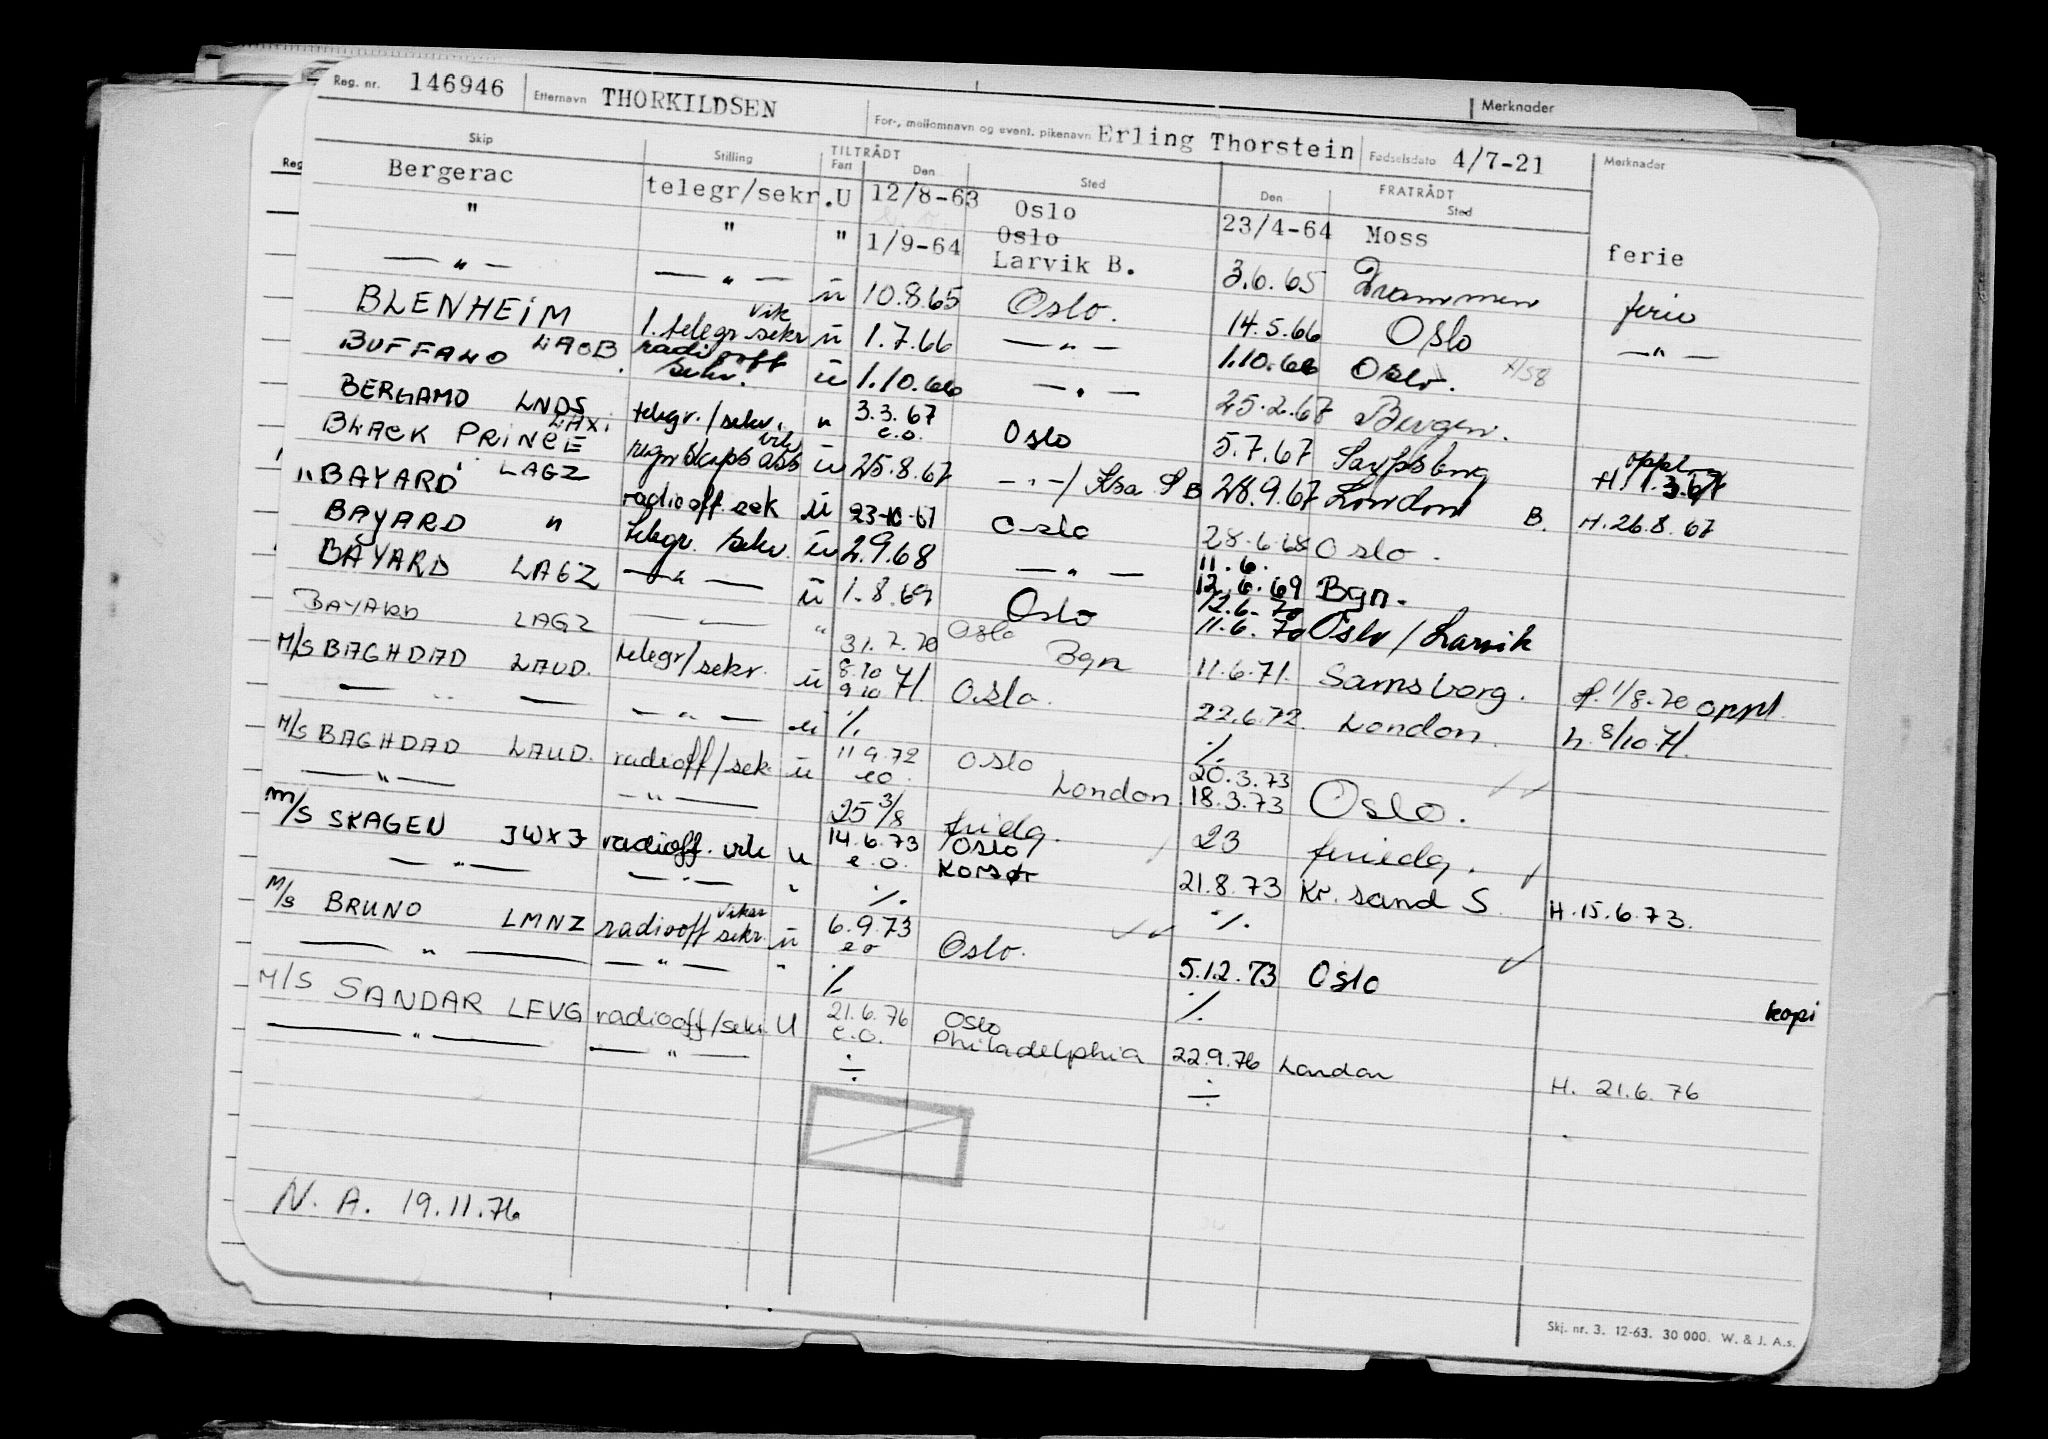 Reg. nr. 146946 Etternavn THORKILDSEN For-, mellomnavn og event. pikenavn Erling Thorstein Fødselsdato 4/7-21 Merknader
Skip Stilling TILTRÅDT Fart Den Sted FRATRÅDT Den Sted Merknader
Reg
Bergerac telegr/sekr. U 12/8-63 Oslo 23/4-64 Moss ferie
" " " 1/9-64 Oslo Larvik B. 3.6.65 Drammen ferie
— " — — " — ü 10.8.65 Oslo. 14.5.66 Oslo — " —
BLENHEIM LAOB 1. telegr sekr vik ü 1.7.66 — " — 1.10.66 Oslo. H58
BUFFALO radiooff sekr. ü 1.10.66 — " — 25.2.67 Bergen.
BERGAMO LNDS telegr./sekr. " 3.3.67 e.o. Oslo 5.7.67 Sarpsborg oppl. H. 1.3.67
BLACK PRINCE LAXI regnskaps ass vik ü 25.8.67 — " — / Krsa S B 28.9.67 London B. H. 26.8.67
"BAYARD" LAGZ radiooff. sek ü 23-10-67 Oslo 28.6.68 Oslo.
BAYARD " telegr. sekr. ü 2.9.68 — " — 11.6. 12.6.69 Bgn.
BAYARD LAGZ — " — ü 1.8.69 Oslo 12.6.70 11.6.70 Oslo / Larvik
BAYARD LAGZ — " — " 31.7.70 Oslo Bgn 11.6.71. Sarpsborg. H. 1/8.70 oppl.
M/S BAGHDAD LAUD. telegr/sekr. ü 8.10 9.10 71. Oslo. 22.6.72. London. h. 8/10.71.
— " — — " — ü ./. ./.
M/S BAGHDAD LAUD. radioff/sek. ü 11.9.72 eo. Oslo London 20.3.73 18.3.73 Oslo.
— " — — " — 25 3/8 fridg. 23 feriedg.
M/S SKAGEN JWXJ radioff. vik u 14.6.73 e.o. Oslo Korsør 21.8.73 Kr. sand S. H. 15.6.73.
— " — — " — " ./. ./.
M/S BRUNO LMNZ radiooff sekr. vikar ü 6.9.73 eo Oslo. 5.12.73 Oslo
— " — — " — " ./. ./. kopi
M/S SANDAR LEVG radiooff/sekr U 21.6.76 e.o. Oslo Philadelphia 22.9.76 London H. 21.6.76
— " — — " — ÷ ÷
N. A. 19.11.76
Skj. nr. 3. 12-63. 30 000. W. & J. A.s.